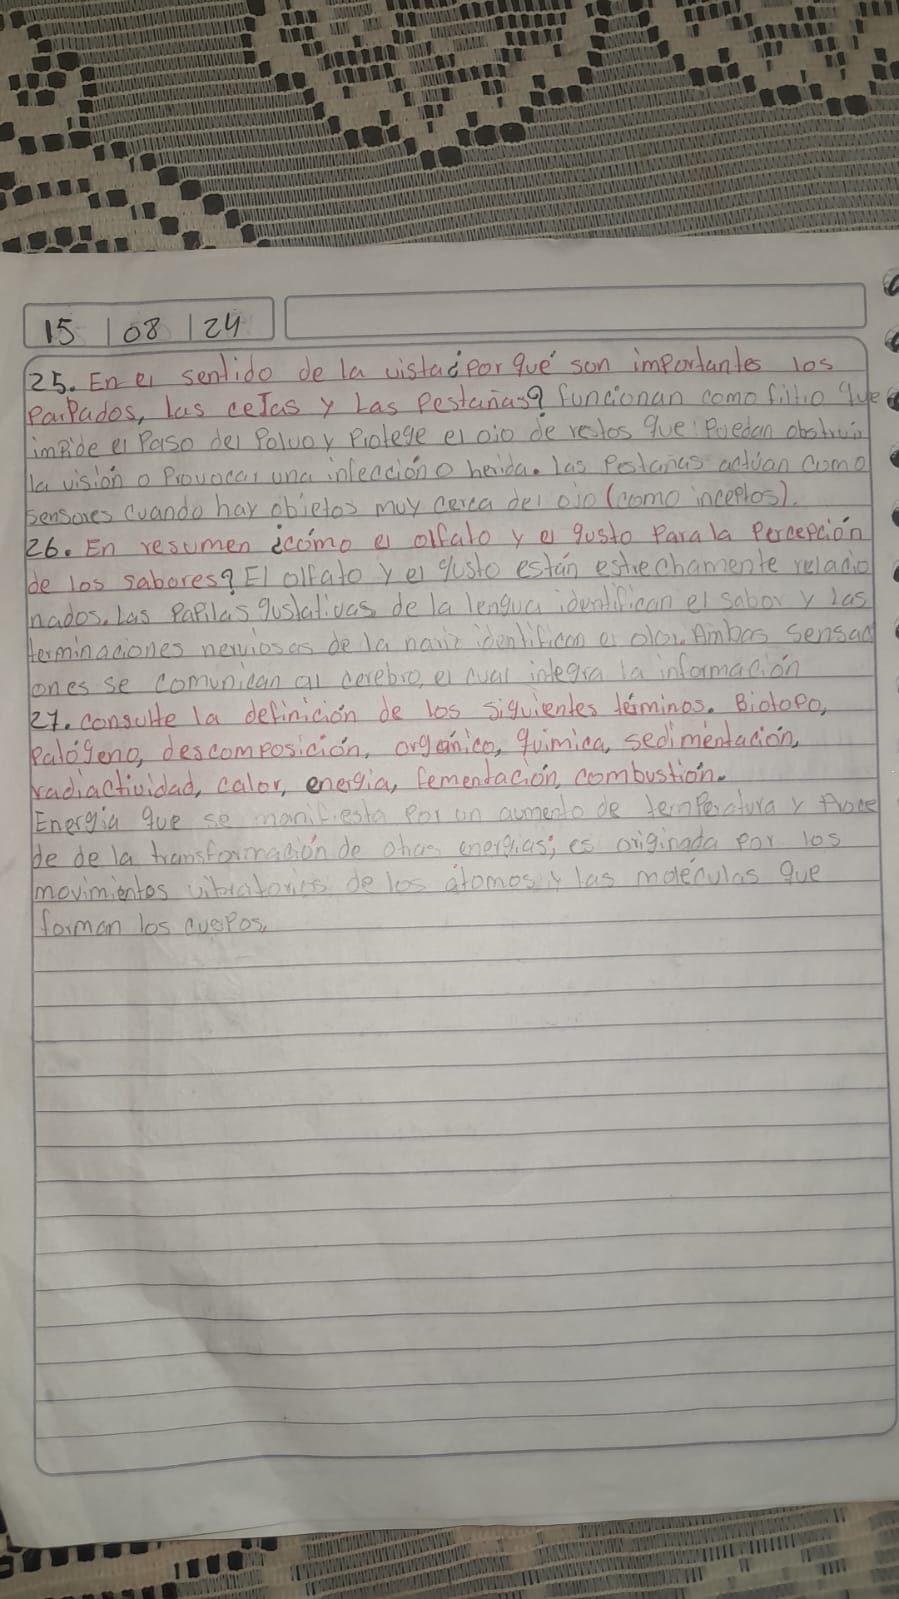 15 / 08 / 24
25. En el sentido de la vista ¿por qué son importantes los
Parpados, las cejas y Las Pestañas? funcionan como filtro que
impide el Paso del Polvo y Protege el ojo de restos que Puedan obstruir
la visión o Provocar una infección o herida. las Pestañas actúan como
sensores cuando hay objetos muy cerca del ojo (como inceptos).
26. En resumen ¿cómo el olfato y el gusto Para la Percepción
de los sabores? El olfato y el gusto están estrechamente relacio
nados. Las PaPilas gustativas de la lengua identifican el sabor y las
terminaciones nerviosas de la nariz identifican el olor. Ambas sensaci
ones se comunican al cerebro, el cual integra la información
27. consulte la definición de los siguientes términos. Biotopo,
Patógeno, descomposición, orgánico, química, sedimentación,
radiactividad, calor, energia, fementación, combustión.
Energía que se manifiesta Por un aumento de temperatura y Proce
de de la transformación de otras energías; es originada por los
movimientos vibratorios de los átomos y las moléculas que
forman los cuerpos.